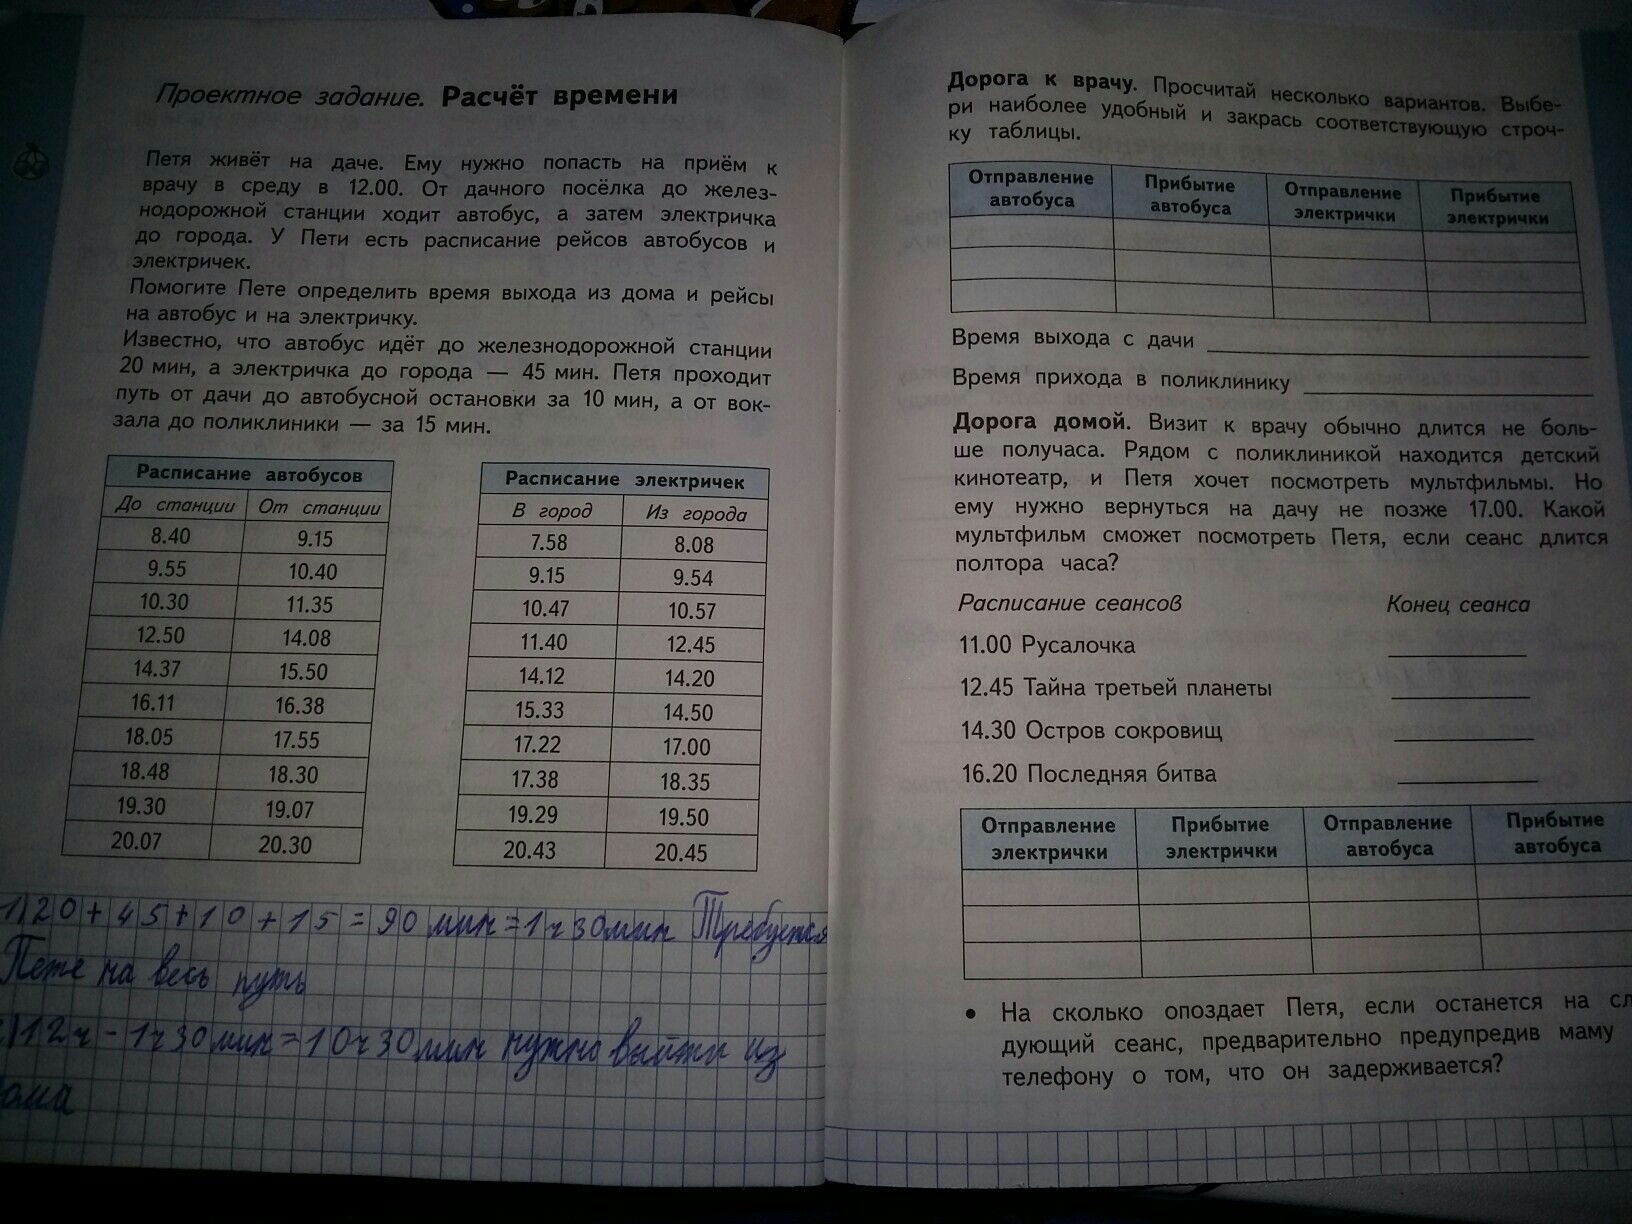 Проектное задание. Расчёт времени
Петя живёт на даче. Ему нужно попасть на приём к
врачу в среду в 12.00. От дачного посёлка до желез-
нодорожной станции ходит автобус, а затем электричка
до города. У Пети есть расписание рейсов автобусов и
электричек.
Помогите Пете определить время выхода из дома и рейсы
на автобус и на электричку.
Известно, что автобус идёт до железнодорожной станции
20 мин, а электричка до города — 45 мин. Петя проходит
путь от дачи до автобусной остановки за 10 мин, а от вок-
зала до поликлиники — за 15 мин.
Расписание автобусов
До станции От станции
8.40 9.15
9.55 10.40
10.30 11.35
12.50 14.08
14.37 15.50
16.11 16.38
18.05 17.55
18.48 18.30
19.30 19.07
20.07 20.30
Расписание электричек
В город Из города
7.58 8.08
9.15 9.54
10.47 10.57
11.40 12.45
14.12 14.20
15.33 14.50
17.22 17.00
17.38 18.35
19.29 19.50
20.43 20.45
1) 20+45+10+15=90 мин=1ч 30мин Требуется
Пете на весь путь
) 12ч-1ч30мин=10ч30мин нужно выйти из
ома
Дорога к врачу. Просчитай несколько вариантов. Выбе-
ри наиболее удобный и закрась соответствующую строч-
ку таблицы.
Отправление автобуса Прибытие автобуса Отправление электрички Прибытие электрички
Время выхода с дачи
Время прихода в поликлинику
Дорога домой. Визит к врачу обычно длится не боль-
ше получаса. Рядом с поликлиникой находится детский
кинотеатр, и Петя хочет посмотреть мультфильмы. Но
ему нужно вернуться на дачу не позже 17.00. Какой
мультфильм сможет посмотреть Петя, если сеанс длится
полтора часа?
Расписание сеансов Конец сеанса
11.00 Русалочка
12.45 Тайна третьей планеты
14.30 Остров сокровищ
16.20 Последняя битва
Отправление электрички Прибытие электрички Отправление автобуса Прибытие автобуса
• На сколько опоздает Петя, если останется на сл
дующий сеанс, предварительно предупредив маму
телефону о том, что он задерживается?